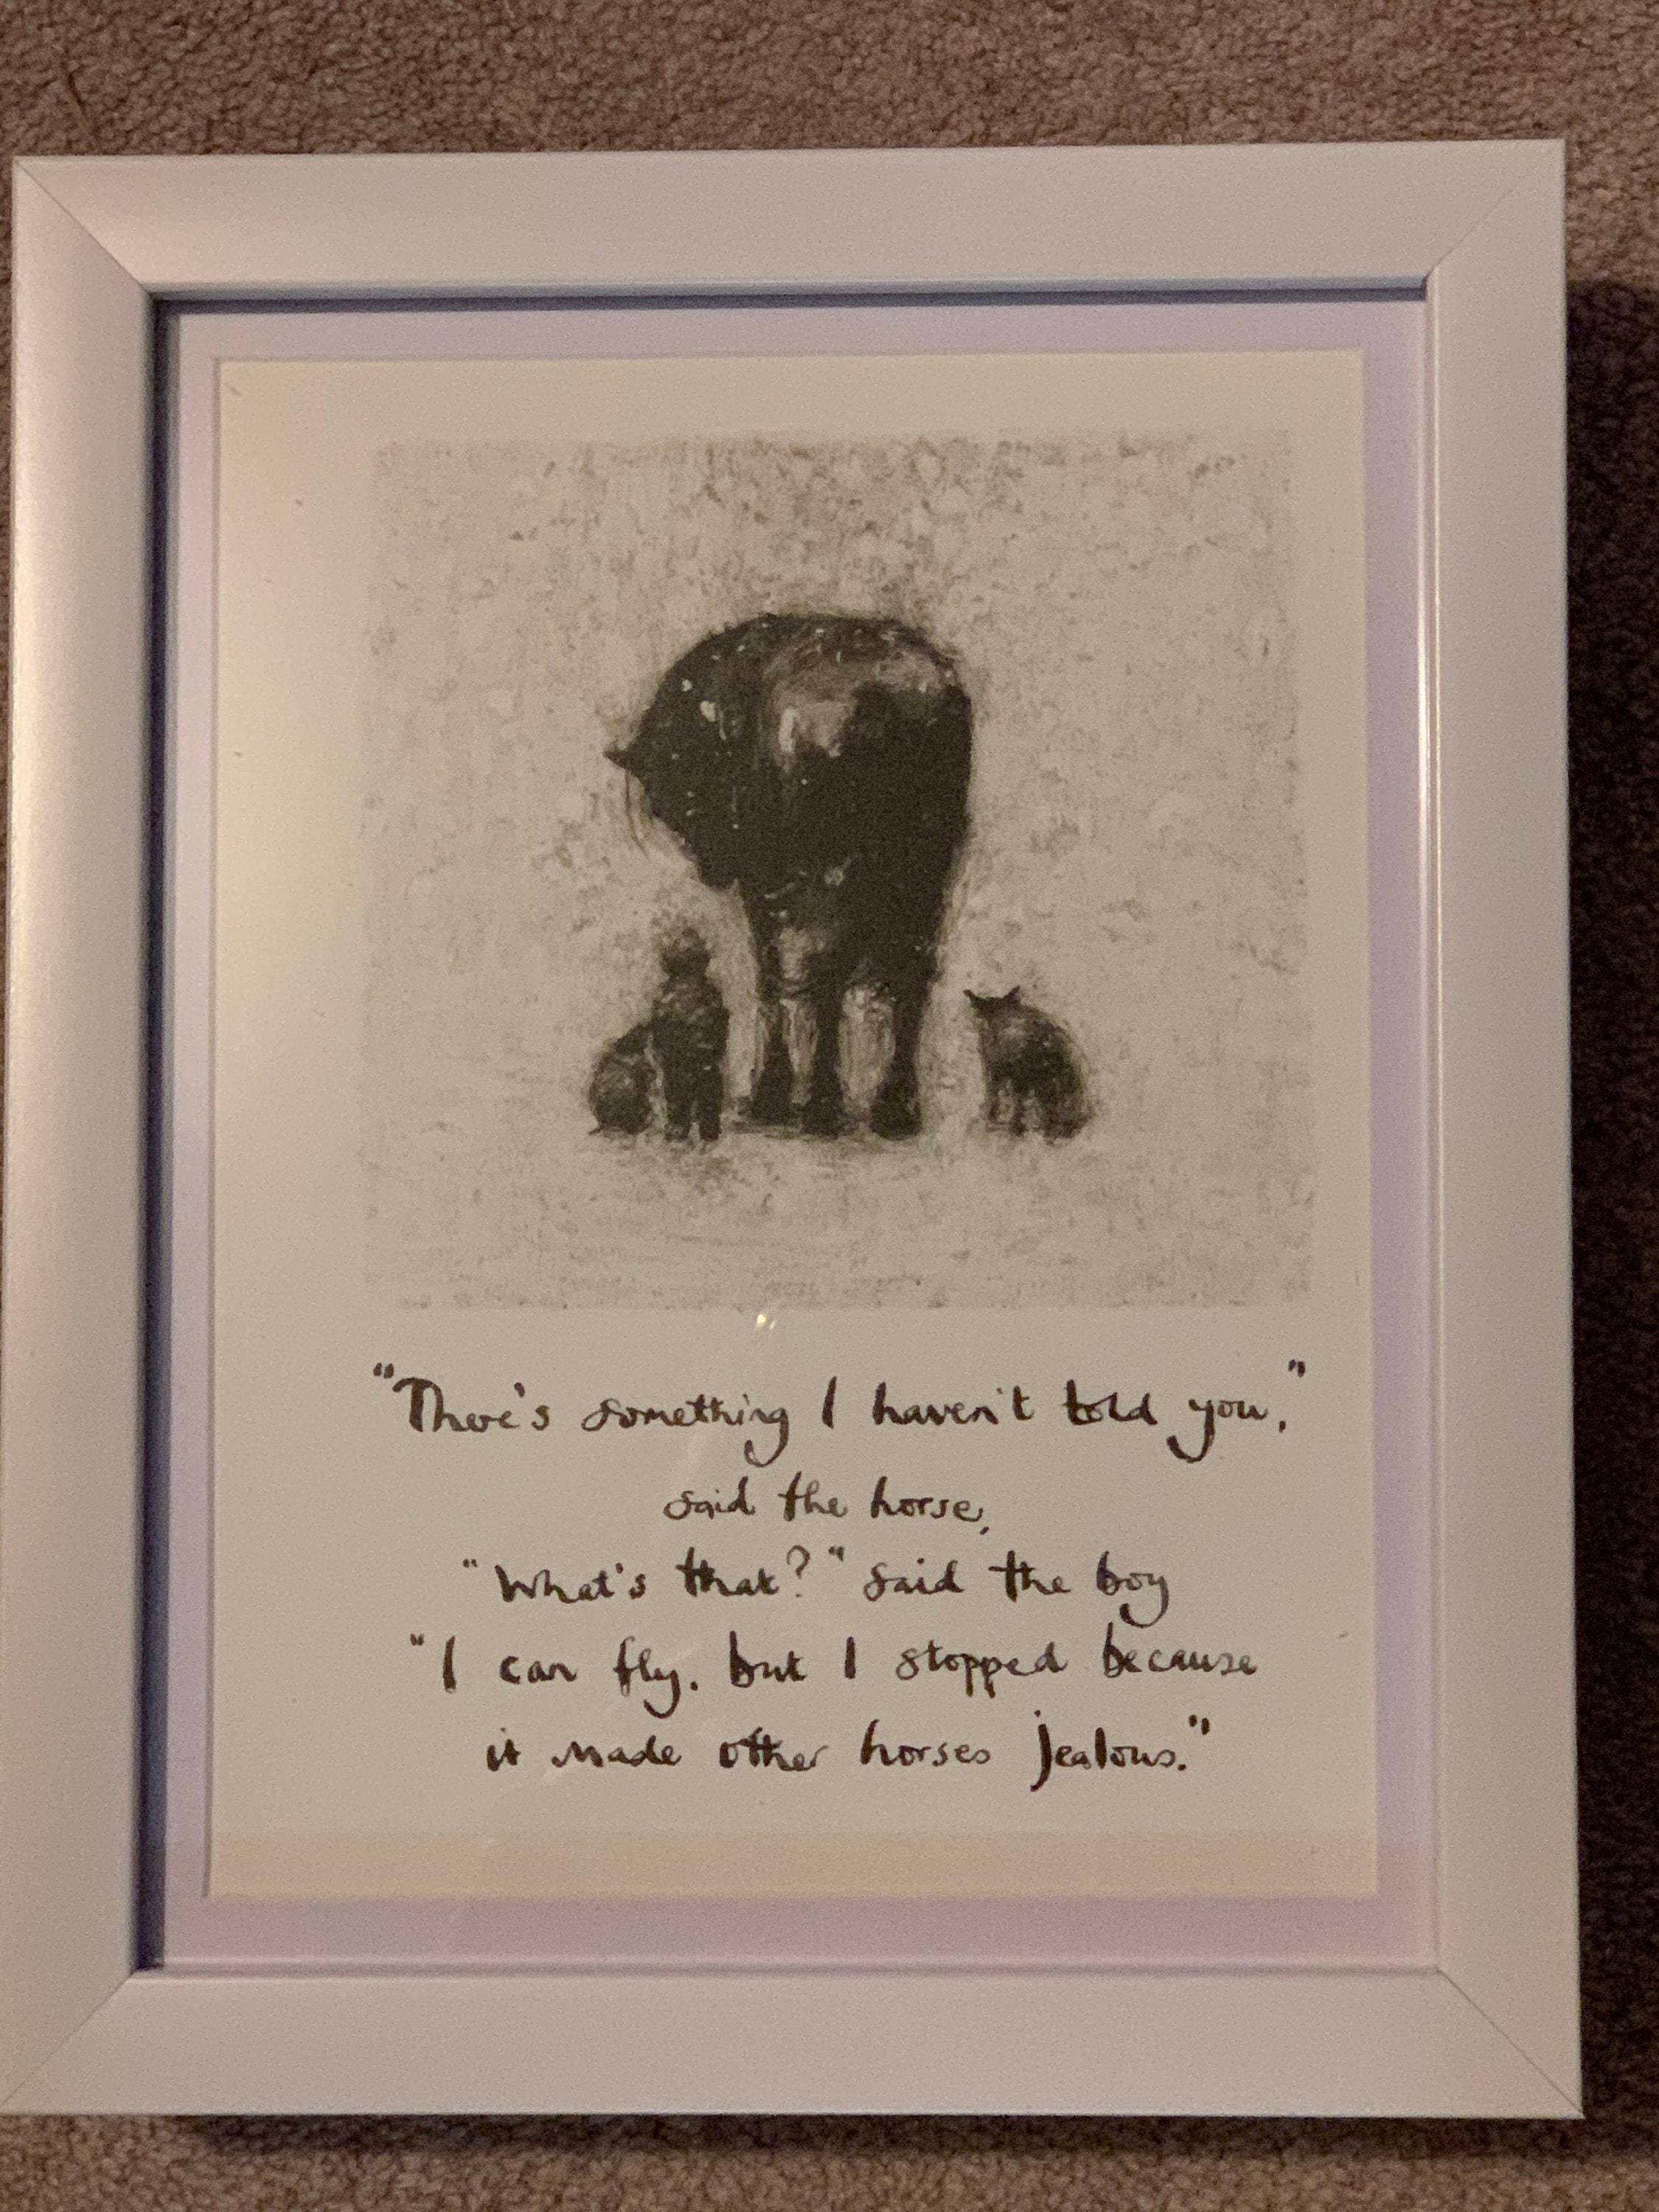 "There's something I haven't told you,"
said the horse,
"What's that?" said the boy
"I can fly. but I stopped because
it made other horses jealous."